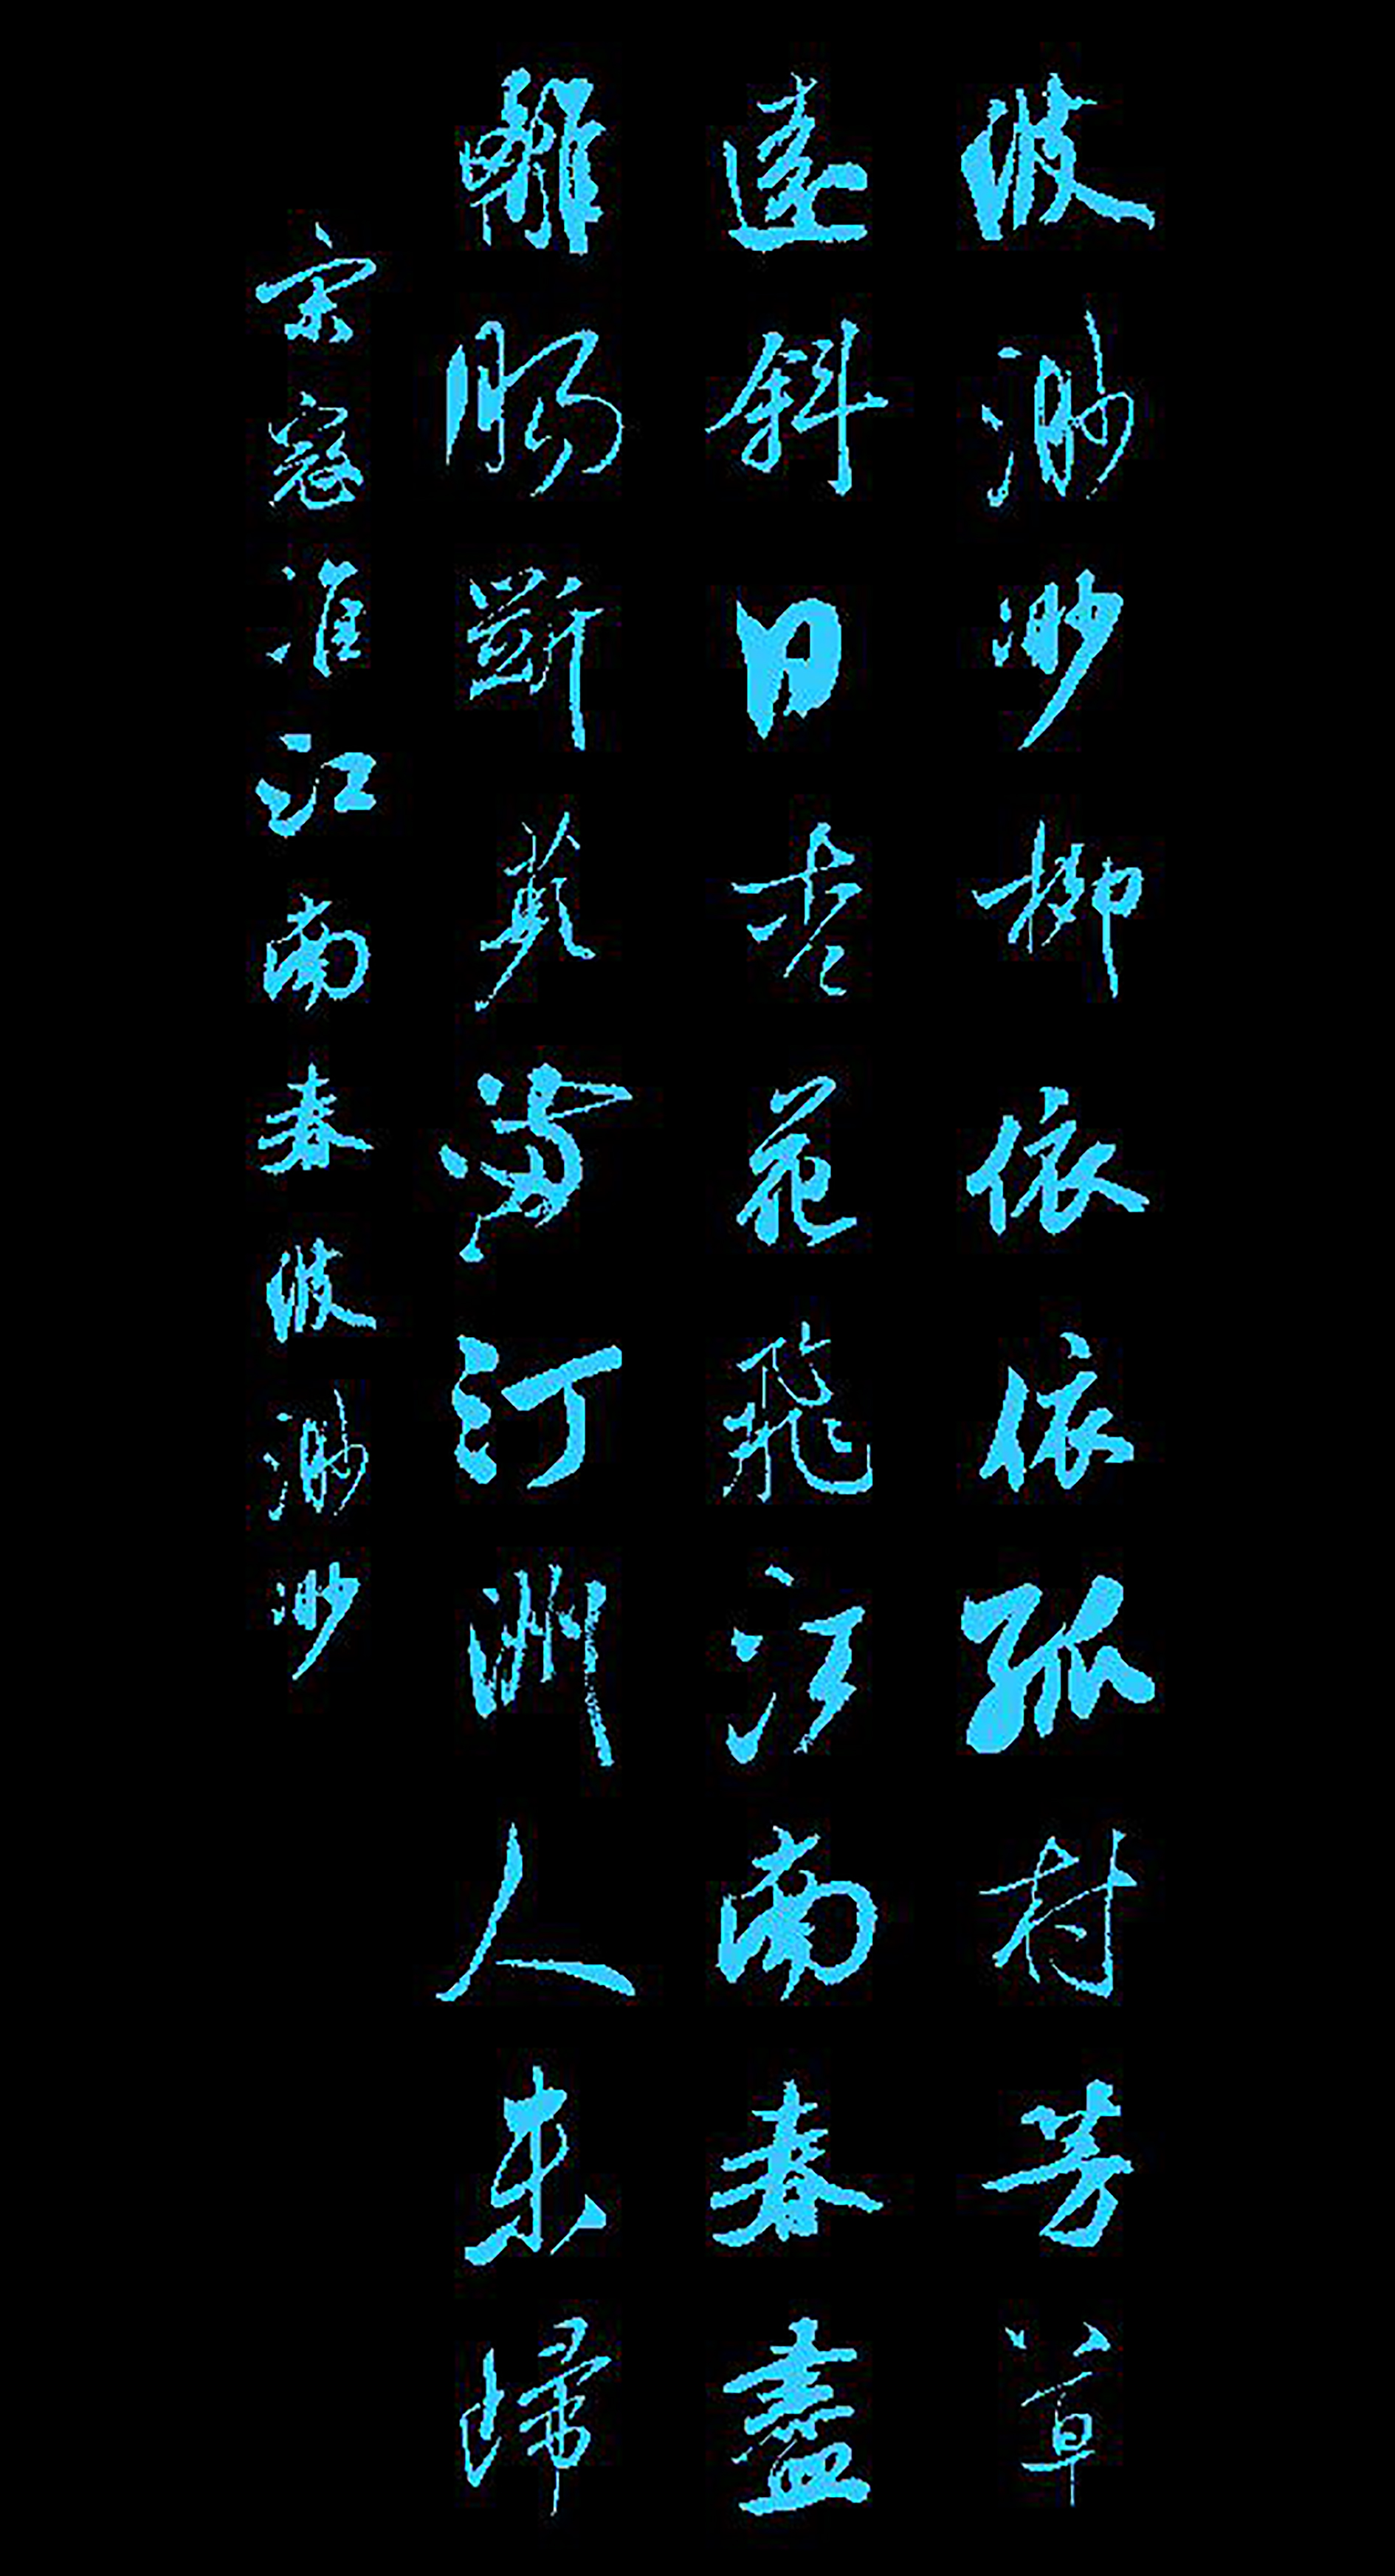 波渺渺柳依依孤村芳草
遠斜日杏花飛江南春盡
離腸斷蘋滿汀洲人未歸
宋寇准江南春波渺渺